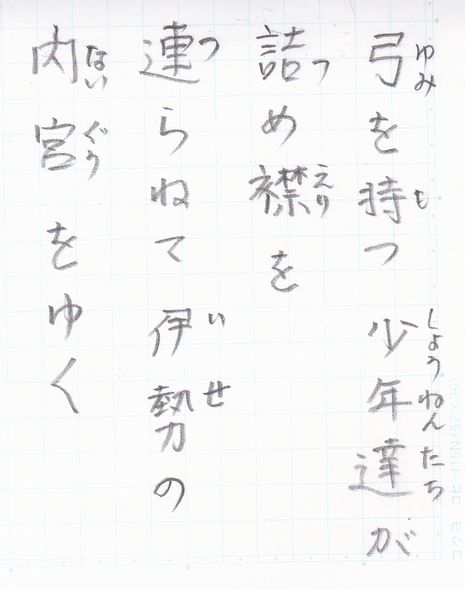 弓を持つ少年達が
ゆみ も しょうねんたち
詰め襟を
つ えり
連らねて伊勢の
つ いせ
内宮をゆく
ないぐう
コクヨ コヒ-115N(52×36)